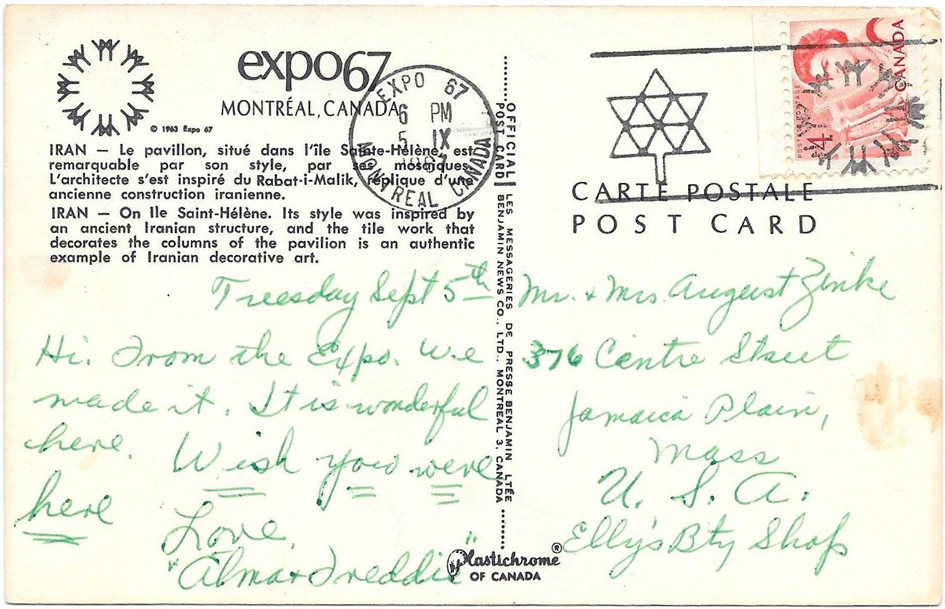 expo67
MONTRÉAL, CANADA
© 1963 Expo 67
IRAN — Le pavillon, situé dans l'île Sainte-Hélène, est
remarquable par son style, par ses mosaïques.
L'architecte s'est inspiré du Rabat-i-Malik, réplique d'une
ancienne construction iranienne.
IRAN — On Ile Saint-Hélène. Its style was inspired by
an ancient Iranian structure, and the tile work that
decorates the columns of the pavilion is an authentic
example of Iranian decorative art.
Tuesday Sept 5th
Hi. From the Expo. We
made it. It is wonderful
here. Wish you were
here
Love,
"Alma + Freddie"
EXPO 67
6 PM
5 IX
1967
MONTREAL CANADA
OFFICIAL POST CARD
LES MESSAGERIES DE PRESSE BENJAMIN LTÉE
BENJAMIN NEWS CO., LTD., MONTREAL 3, CANADA
Plastichrome®
OF CANADA
CANADA
4
CARTE POSTALE
POST CARD
Mr. + Mrs. August Zinke
376 Centre Street
Jamaica Plain,
Mass
U. S. A.
Elly's Bty Shop